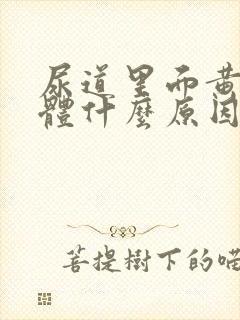 尿道里而黄
體什麼原因
菩提樹下的喵